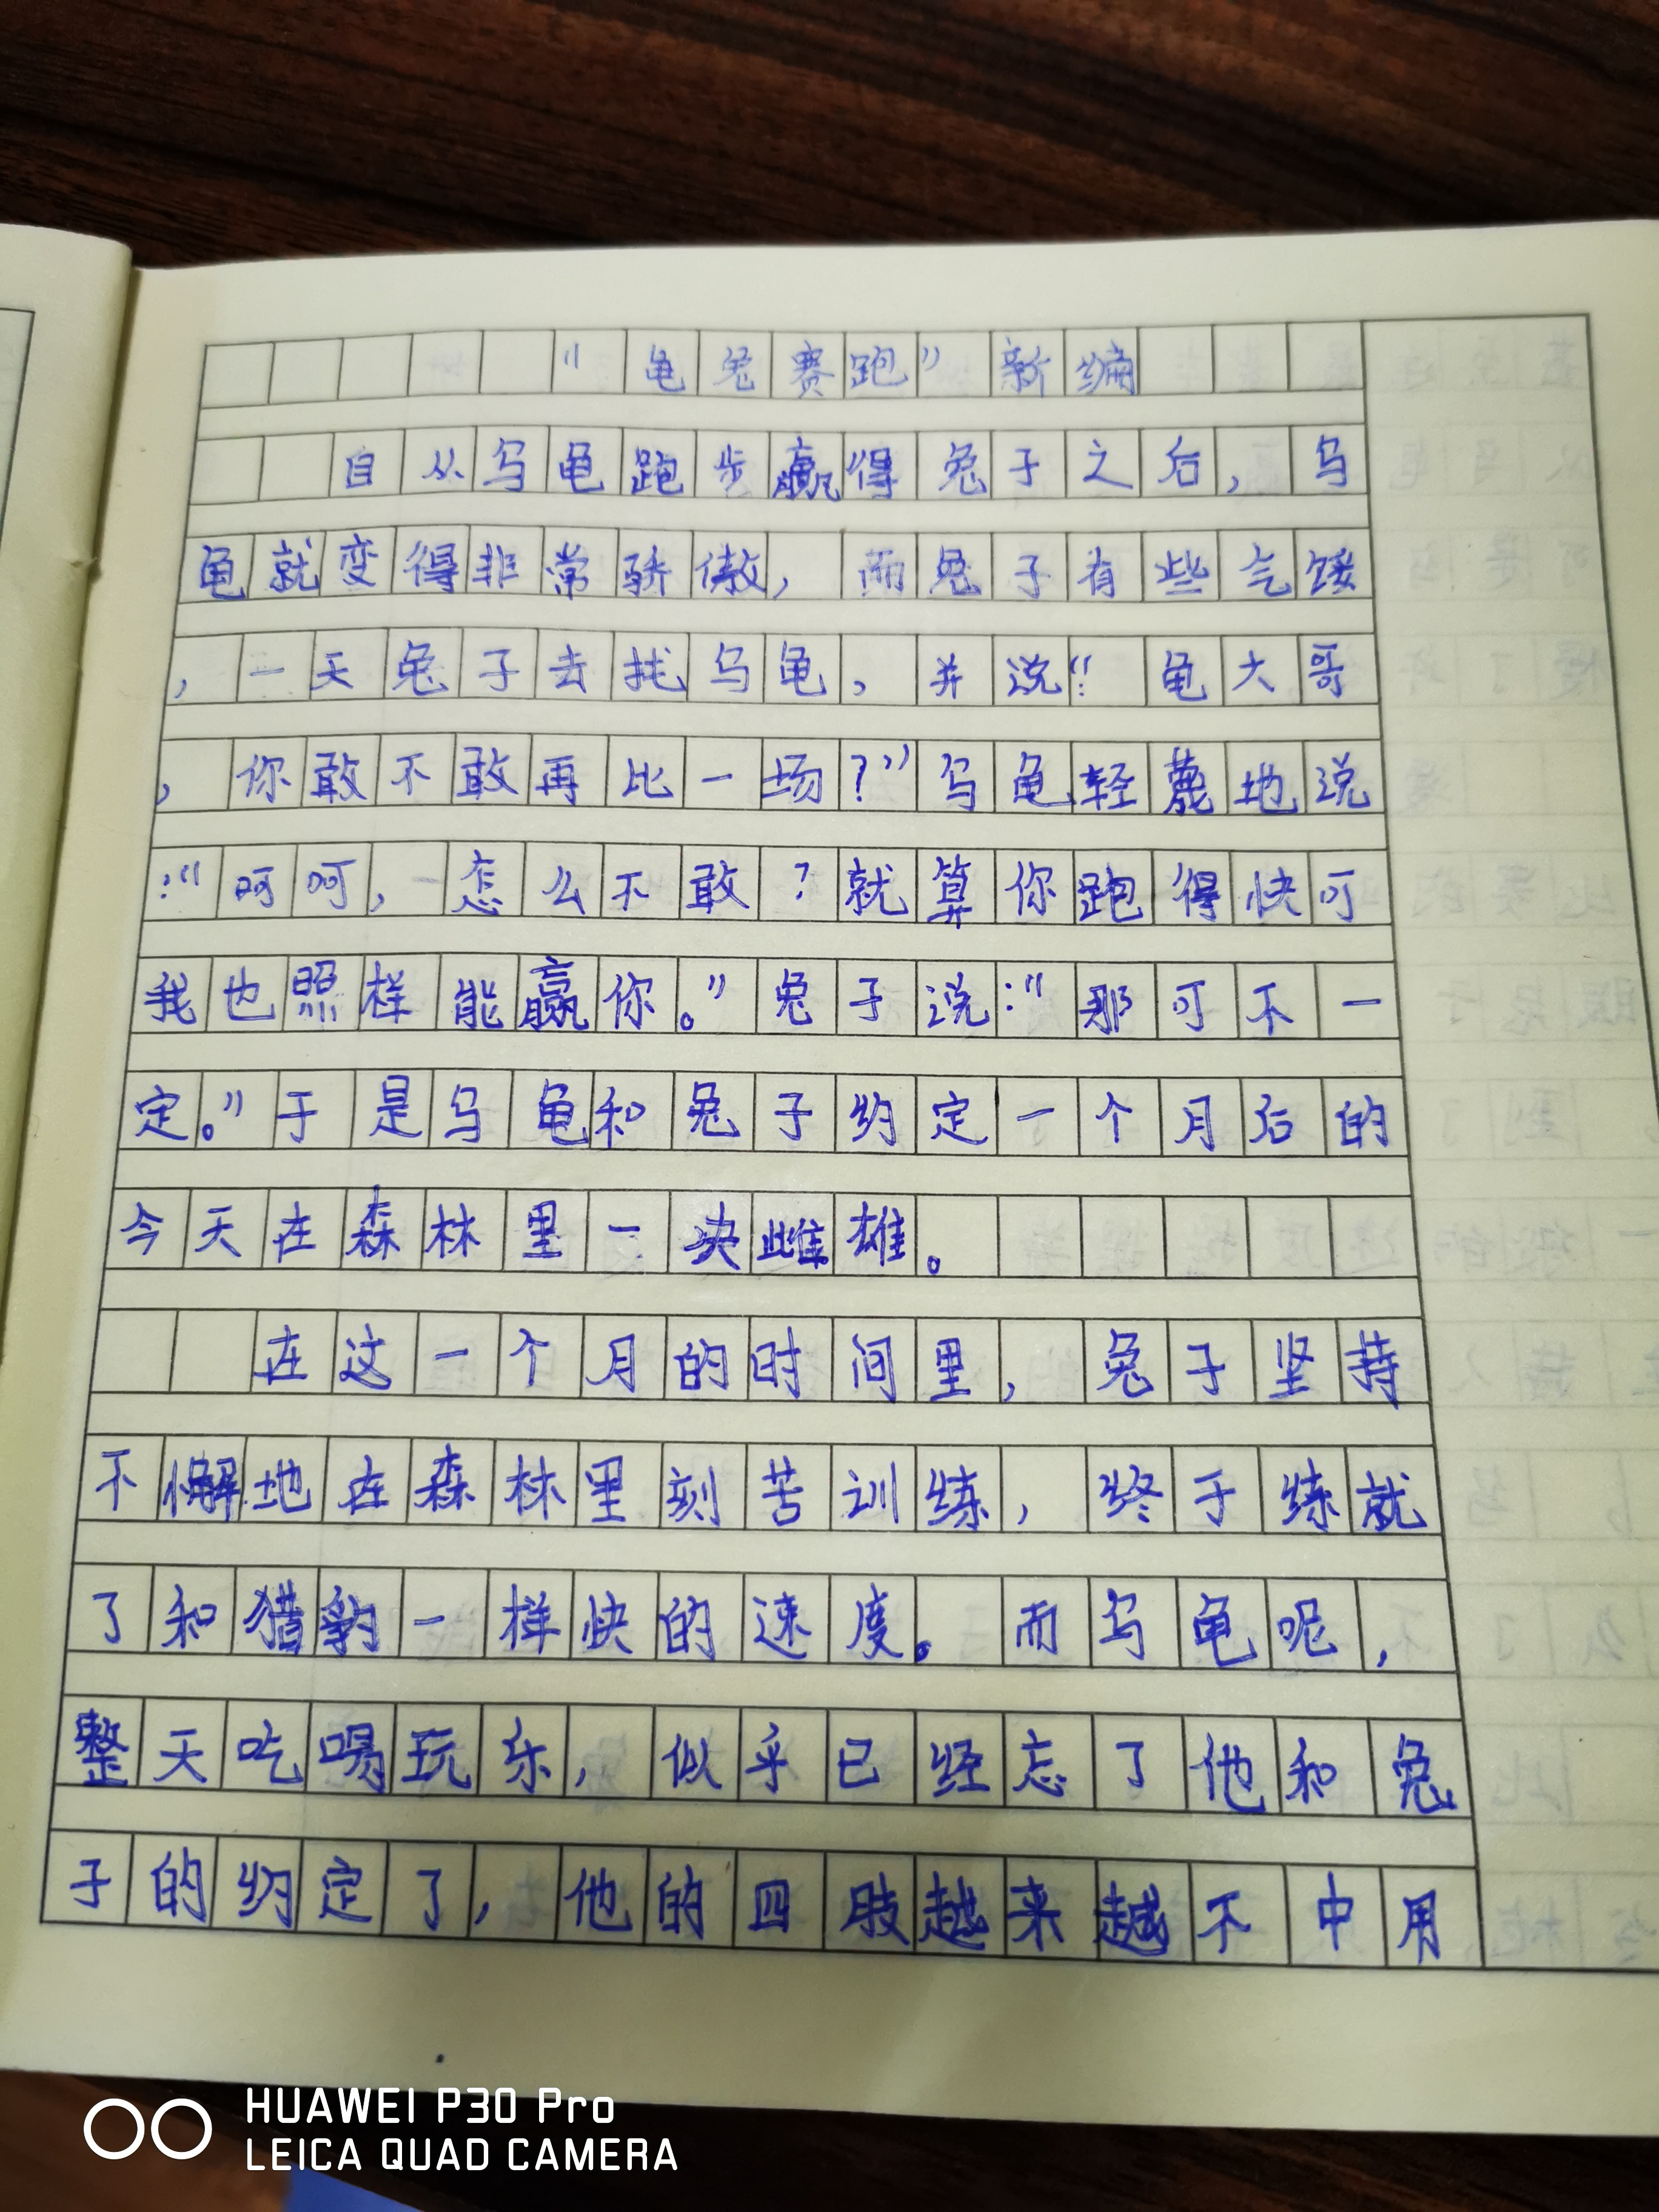 “龟兔赛跑”新编
自从乌龟跑步赢得兔子之后，乌
龟就变得非常骄傲，而兔子有些气馁
，一天兔子去找乌龟，并说：“龟大哥
，你敢不敢再比一场？”乌龟轻蔑地说
：“呵呵，怎么不敢？就算你跑得快可
我也照样能赢你。”兔子说：“那可不一
定。”于是乌龟和兔子约定一个月后的
今天在森林里一决雌雄。
在这一个月的时间里，兔子坚持
不懈地在森林里刻苦训练，终于练就
了和猎豹一样快的速度。而乌龟呢，
整天吃喝玩乐，似乎已经忘了他和兔
子的约定了，他的四肢越来越不中用
HUAWEI P30 Pro
LEICA QUAD CAMERA